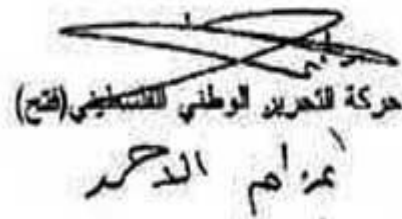 حركة التحرير الوطني الفلسطيني (فتح)
عزام الأحمد